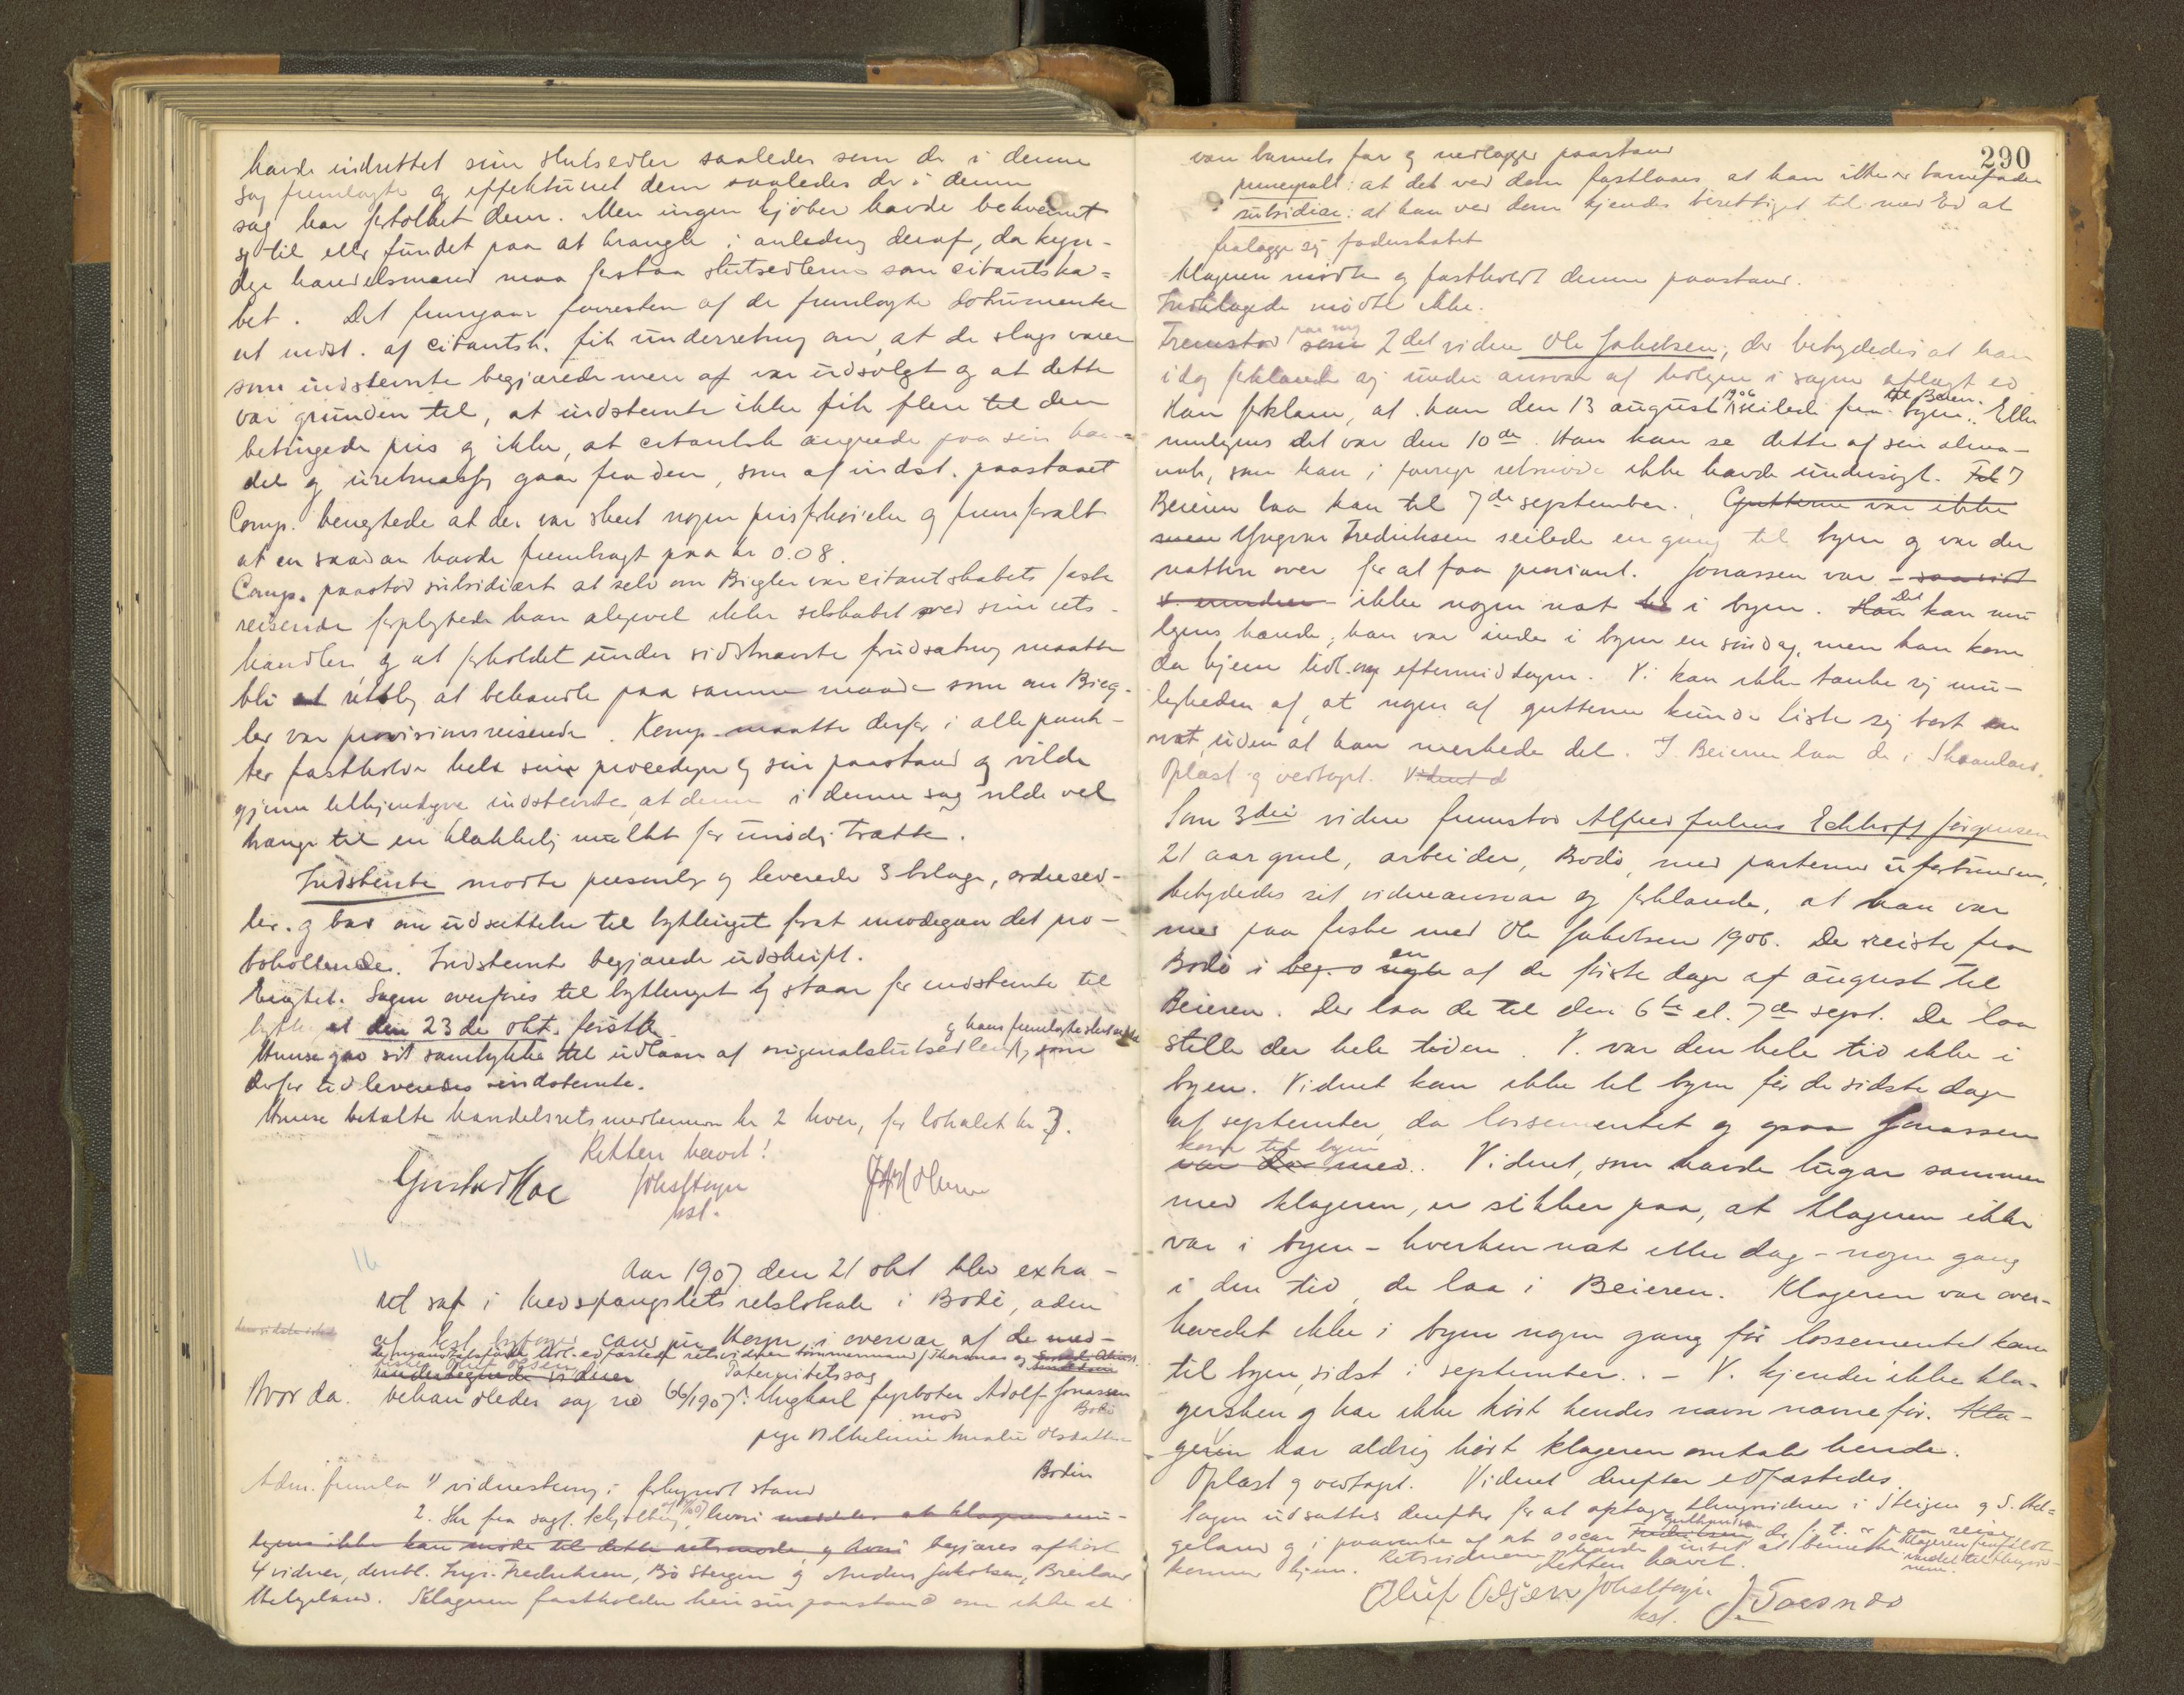 havde indrettet sine slutsedler saaledes som de i denne
sag fremlagte og effektueret dem saaledes de i denne
sag har fortolket dem. Men ingen kjöber havde bekvemt
sig til eller fundet paa at krangle i anledning deraf, da kyn-
dige handelsmænd maa forstaa slutsedlerne som citantska-
bet. Det fremgaar forresten af de fremlagte dokumenter
at indst. af citantsk. fik underretning om, at de slags varer
som indstevnte begjærede mere af var udsolgt og at dette
var grunden til, at indstevnte ikke fik flere til den
betingede pris og ikke, at citantsk angrede paa sin han-
del og uretmæssig gaar fra den, som af indst. paastaaet
Comp. benegtede at der var skeet nogen prisforhöielse og fremforalt
at en saadan havde frembragt paa kr 0.08.
Comp. paastod subsidiært at selv om Bigler var citantskabets faste
reisende forpligtede han alligevel ikke selskabet ved sine uts-
handler og at forholdet under sidstnævnte forudsætning maatte
bli at retslig at behandle paa samme maade som om Bieg-
ler var provisionsreisende. Komp. maatte derfor i alle punk-
ter fastholde hele sin procedyre og sin paastand og vilde
gjerne tilkjendegive indstevnte, at denne i denne sag vilde vel
trænge til en klækkelig mulkt for unödig trætte.
Indstevnte mödte personlig og leverede 3 bilage, ordresed-
ler. og bad om udsættelse til bythinget forat imødegaa det pro-
tokollerede. Indstevnte begjærede udskrift.
Bevigtet. Sagen overföres til bythinget og staar for indstevnte til
bythinget den 23de okt. förstk.
Unuse gav sit samtykke til udlaan af originalslutsedlen og hans fremlagte som
derfor udleveredes indstevnte.
betalte handelsretsmedlemmerne kr 2 hver, for lokalet kr 3.
Retten hævet!
Gustav Moe
kst.
16
Aar 1907 den 21 okt blev extra-
ret sat i Kredsfængslets retslokale i Bodö, adm
af kst. byfoged cand jur i overvær af de med-
retsvidner tømmermand og
undertegnede vidner
Paternitetssag
Hvor da behandledes sag no 66/1907: Ungkarl fyrböter Adolf Jonassen
Bodö
mod
pige Vilhelmine Amalie Olsdatter
Bodin
Adm. fremla 1) vidnestevning i forkyndt stand
2. Skr fra sagf. hvori meddeles at klageren mu-
ligens ikke kan møde til dette retsmøde, og hvori begjæres afhört
4 vidner, deribl. Fredriksen, Bö Steigen og Anders Jakobsen, Breiland
Helgeland. Klageren fastholder heri sin paastand om ikke at
290
være barnets far og nedlægger paastand
principalt: at det ved dom fastslaaes at han ikke er barnefader
subsidiær: at han ved dom kjendes berettiget til med Ed at
fralægge sig faderskabet
Klageren mödte og fastholdt denne paastand.
Indklagede mödte ikke.
Fremstod paa ny som 2det vidne Ole Jakobsen, der betydedes at han
idag forklarede sig under ansvar af tidligere i sagen aflagt ed
Han forklarer, at han den 13 august 1906 seilede fra byen til Beieren. Eller
muligens det var den 10de. Han kan se dette af sin alma-
nak, som han i forrige retsmöde ikke havde undersögt. I
Beieren laa han til 7de september. Gutterne var ikke
men Yngvar Fredriksen seilede en gang til byen og var der
natten over for at faa proviant. Jonassen var – saavidt
v. erindrer – ikke nogen nat i byen. Han Det kan mu
ligens hænde, han var inde i byen en söndag, men han kom
da hjem tidl. om eftermiddagen. V. kan ikke tænke sig mu-
ligheden af, at nogen af gutterne kunde liste sig bort en
nat, uden at han merkede det. I Beieren laa de i Skaanland.
Oplæst og vedtaget. Vidnet d
Som 3die vidne fremstod Alfred Julius Eckhoff Jörgensen
21 aar gml, arbeider, Bodö, med parterne uforbunden,
betydedes sit vidneansvar og forklarede, at han var
med paa fiske med Ole Jakobsen 1906. De reiste fra
Bodö i beg. o en af de förste dage af august til
Beieren. Der laa de til den 6te el. 7de sept. De laa
stille der hele tiden. V. var den hele tid ikke i
byen. Vidnet kom ikke til byen för de sidste dage
af september, da lossementet og ogsaa Jonassen
kom til byen
var der med. Vidnet, som havde lugar sammen
med klageren, er sikker paa, at klageren ikke
var i byen – hverken nat eller dag – nogen gang
i den tid, de laa i Beieren. Klageren var over-
hovedet ikke i byen nogen gang för lossementet kom
til byen, sidst i september. – V. kjender ikke kla-
gersken og har ikke hört hendes navn nævne för. Kla-
geren har aldrig hört klageren omtale hende.
Oplæst og vedtaget. Vidnet derefter edfæstedes.
Sagen udsattes derefter for at optage thingsvidner i Steigen og S. Hel-
geland og i paavente af at Oscar Fredriksen der f. t. er paa reise,
kommer hjem. Retsvidnerne havde intet at bemerke. Klageren frafaldt
varsel til thingsvid-
nerne.
Retten hævet.
Oluf Olsen
kst.